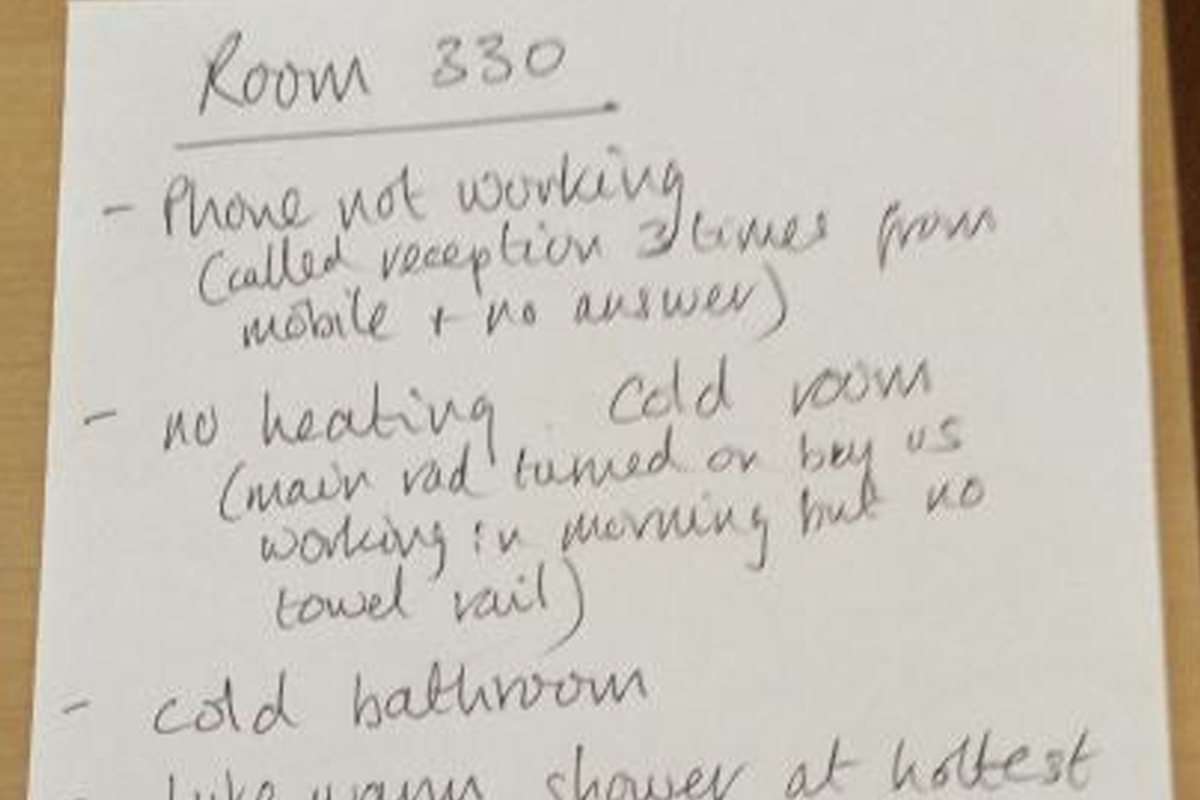 Room 330
- Phone not working
(called reception 3 times from
mobile + no answer)
- no heating. Cold room
(main rad turned on by us
working in morning but no
towel rail)
- cold bathroom
- luke warm shower at hottest